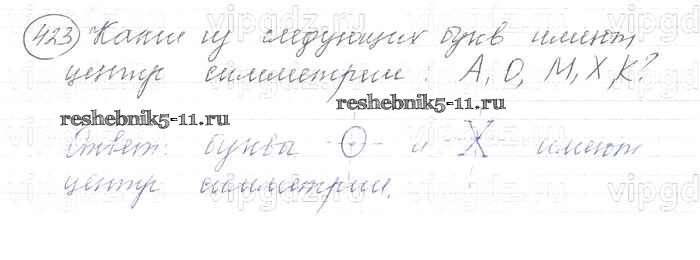 vipgdz.ru vipgdz
423 Какие из следующих букв имеют
центр симметрии: А, О, М, Х, К?
reshebnik5-11.ru
reshebnik5-11.ru
Ответ: буква О и Х имеют
центр симметрии.
vipgdz